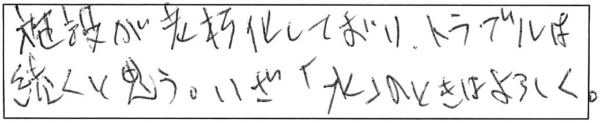 施設が老朽化しており、トラブルは
続くと思う。いざ「水」のときはよろしく。